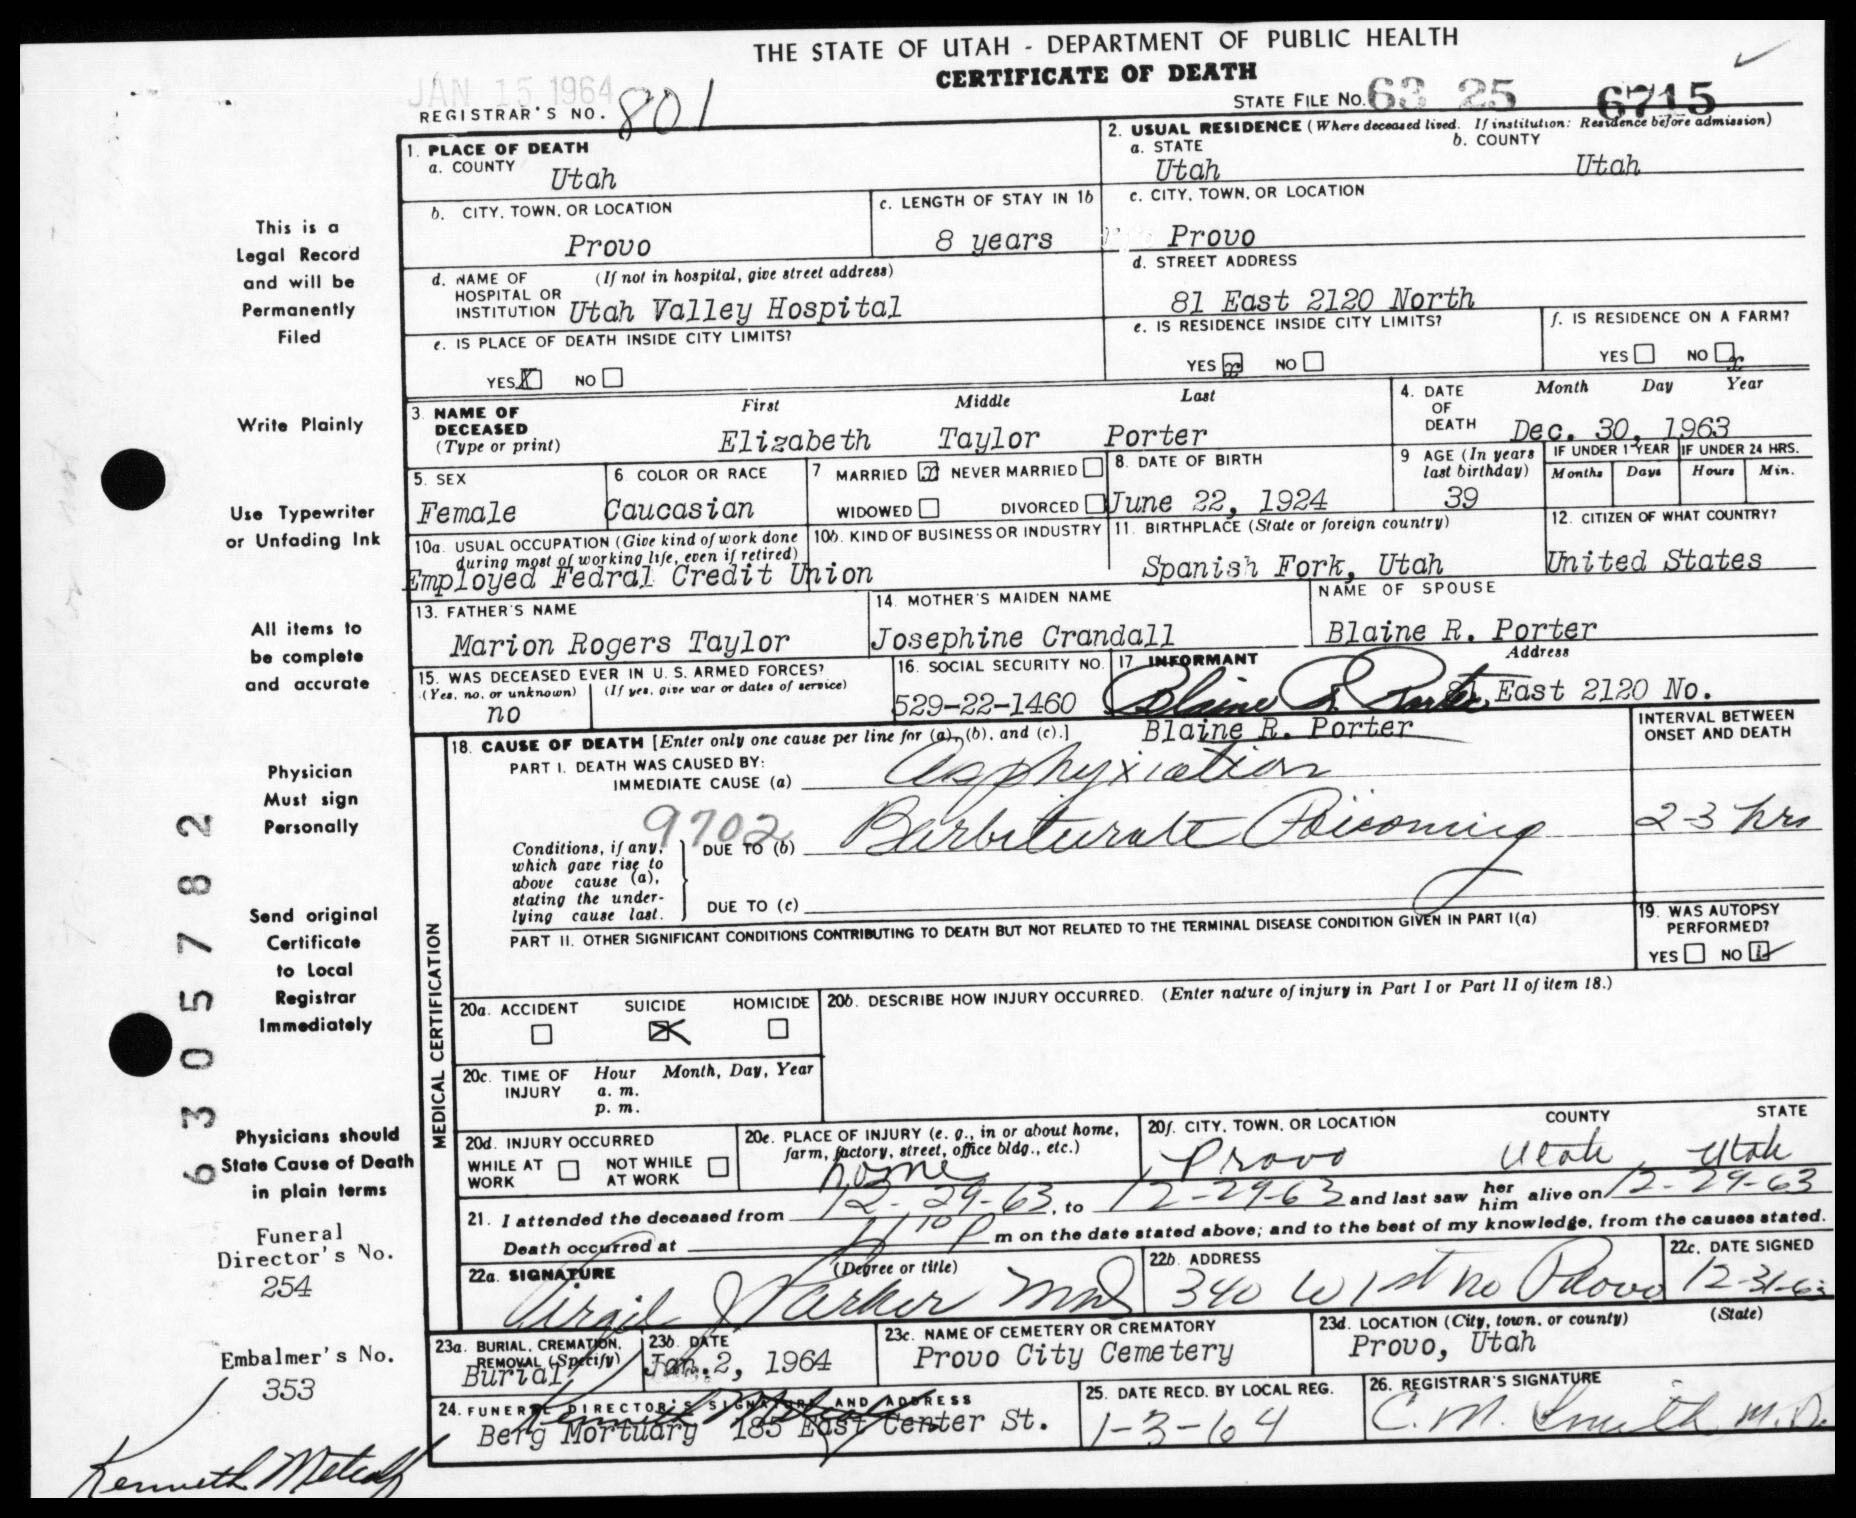 THE STATE OF UTAH - DEPARTMENT OF PUBLIC HEALTH
CERTIFICATE OF DEATH
JAN 15 1964
REGISTRAR'S NO. 801
STATE FILE NO. 63 25 6715
1. PLACE OF DEATH
a. COUNTY
Utah
2. USUAL RESIDENCE (Where deceased lived. If institution: Residence before admission)
a. STATE b. COUNTY
Utah Utah
b. CITY, TOWN, OR LOCATION
Provo
c. LENGTH OF STAY IN 1b
8 years
c. CITY, TOWN, OR LOCATION
Provo
d. NAME OF HOSPITAL OR INSTITUTION (If not in hospital, give street address)
Utah Valley Hospital
d. STREET ADDRESS
81 East 2120 North
e. IS PLACE OF DEATH INSIDE CITY LIMITS?
YES X NO
e. IS RESIDENCE INSIDE CITY LIMITS?
YES x NO
f. IS RESIDENCE ON A FARM?
YES NO x
3. NAME OF DECEASED (Type or print)
First Middle Last
Elizabeth Taylor Porter
4. DATE OF DEATH Month Day Year
Dec. 30, 1963
5. SEX
Female
6. COLOR OR RACE
Caucasian
7 MARRIED x NEVER MARRIED
WIDOWED DIVORCED
8. DATE OF BIRTH
June 22, 1924
9 AGE (In years last birthday)
39
IF UNDER 1 YEAR IF UNDER 24 HRS.
Months Days Hours Min.
10a. USUAL OCCUPATION (Give kind of work done during most of working life, even if retired)
10b. KIND OF BUSINESS OR INDUSTRY
Employed Fedral Credit Union
11. BIRTHPLACE (State or foreign country)
Spanish Fork, Utah
12. CITIZEN OF WHAT COUNTRY?
United States
13. FATHER'S NAME
Marion Rogers Taylor
14. MOTHER'S MAIDEN NAME
Josephine Crandall
NAME OF SPOUSE
Blaine R. Porter
15. WAS DECEASED EVER IN U. S. ARMED FORCES?
(Yes, no, or unknown) (If yes, give war or dates of service)
no
16. SOCIAL SECURITY NO.
529-22-1460
17 INFORMANT Address
Blaine R. Porter 81 East 2120 No.
Blaine R. Porter
MEDICAL CERTIFICATION
18. CAUSE OF DEATH [Enter only one cause per line for (a), (b), and (c).]
INTERVAL BETWEEN ONSET AND DEATH
PART I. DEATH WAS CAUSED BY:
IMMEDIATE CAUSE (a) Asphyxiation
9702
Conditions, if any, which gave rise to above cause (a), stating the underlying cause last.
DUE TO (b) Barbiturate Poisoning 2-3 hrs
DUE TO (c)
PART II. OTHER SIGNIFICANT CONDITIONS CONTRIBUTING TO DEATH BUT NOT RELATED TO THE TERMINAL DISEASE CONDITION GIVEN IN PART I(a)
19. WAS AUTOPSY PERFORMED?
YES NO
20a. ACCIDENT SUICIDE HOMICIDE
X
20b. DESCRIBE HOW INJURY OCCURRED. (Enter nature of injury in Part I or Part II of item 18.)
20c. TIME OF INJURY Hour Month, Day, Year
a. m.
p. m.
20d. INJURY OCCURRED
WHILE AT WORK NOT WHILE AT WORK
20e. PLACE OF INJURY (e. g., in or about home, farm, factory, street, office bldg., etc.)
home
20f. CITY, TOWN, OR LOCATION COUNTY STATE
Provo Utah Utah
21. I attended the deceased from 12-29-63, to 12-29-63 and last saw her him alive on 12-29-63
Death occurred at 1:10 P m on the date stated above; and to the best of my knowledge, from the causes stated.
22a. SIGNATURE (Degree or title)
Virgil J Parker MD
22b. ADDRESS
340 W 1st no Provo
22c. DATE SIGNED
12-31-63
23a. BURIAL, CREMATION, REMOVAL (Specify)
Burial
23b. DATE
Jan. 2, 1964
23c. NAME OF CEMETERY OR CREMATORY
Provo City Cemetery
23d. LOCATION (City, town, or county) (State)
Provo, Utah
24. FUNERAL DIRECTOR'S SIGNATURE AND ADDRESS
Kenneth Metcalf
Berg Mortuary 185 East Center St.
25. DATE RECD. BY LOCAL REG.
1-3-64
26. REGISTRAR'S SIGNATURE
C. M. Smith M.D.
This is a
Legal Record
and will be
Permanently
Filed
Write Plainly
Use Typewriter
or Unfading Ink
All items to
be complete
and accurate
Physician
Must sign
Personally
Send original
Certificate
to Local
Registrar
Immediately
Physicians should
State Cause of Death
in plain terms
6305782
Funeral
Director's No.
254
Embalmer's No.
353
Kenneth Metcalf